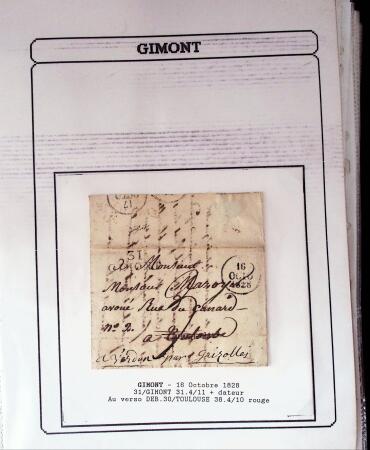 GIMONT
31
16
1828
A Monsieur
Monsieur Mazoy
avoué Rue du Canard
n° 2.
a Toulouse
a Verdun par Grizolles
GIMONT - 16 Octobre 1828
31/GIMONT 31.4/11 + dateur
Au verso DEB.30/TOULOUSE 38.4/10 rouge